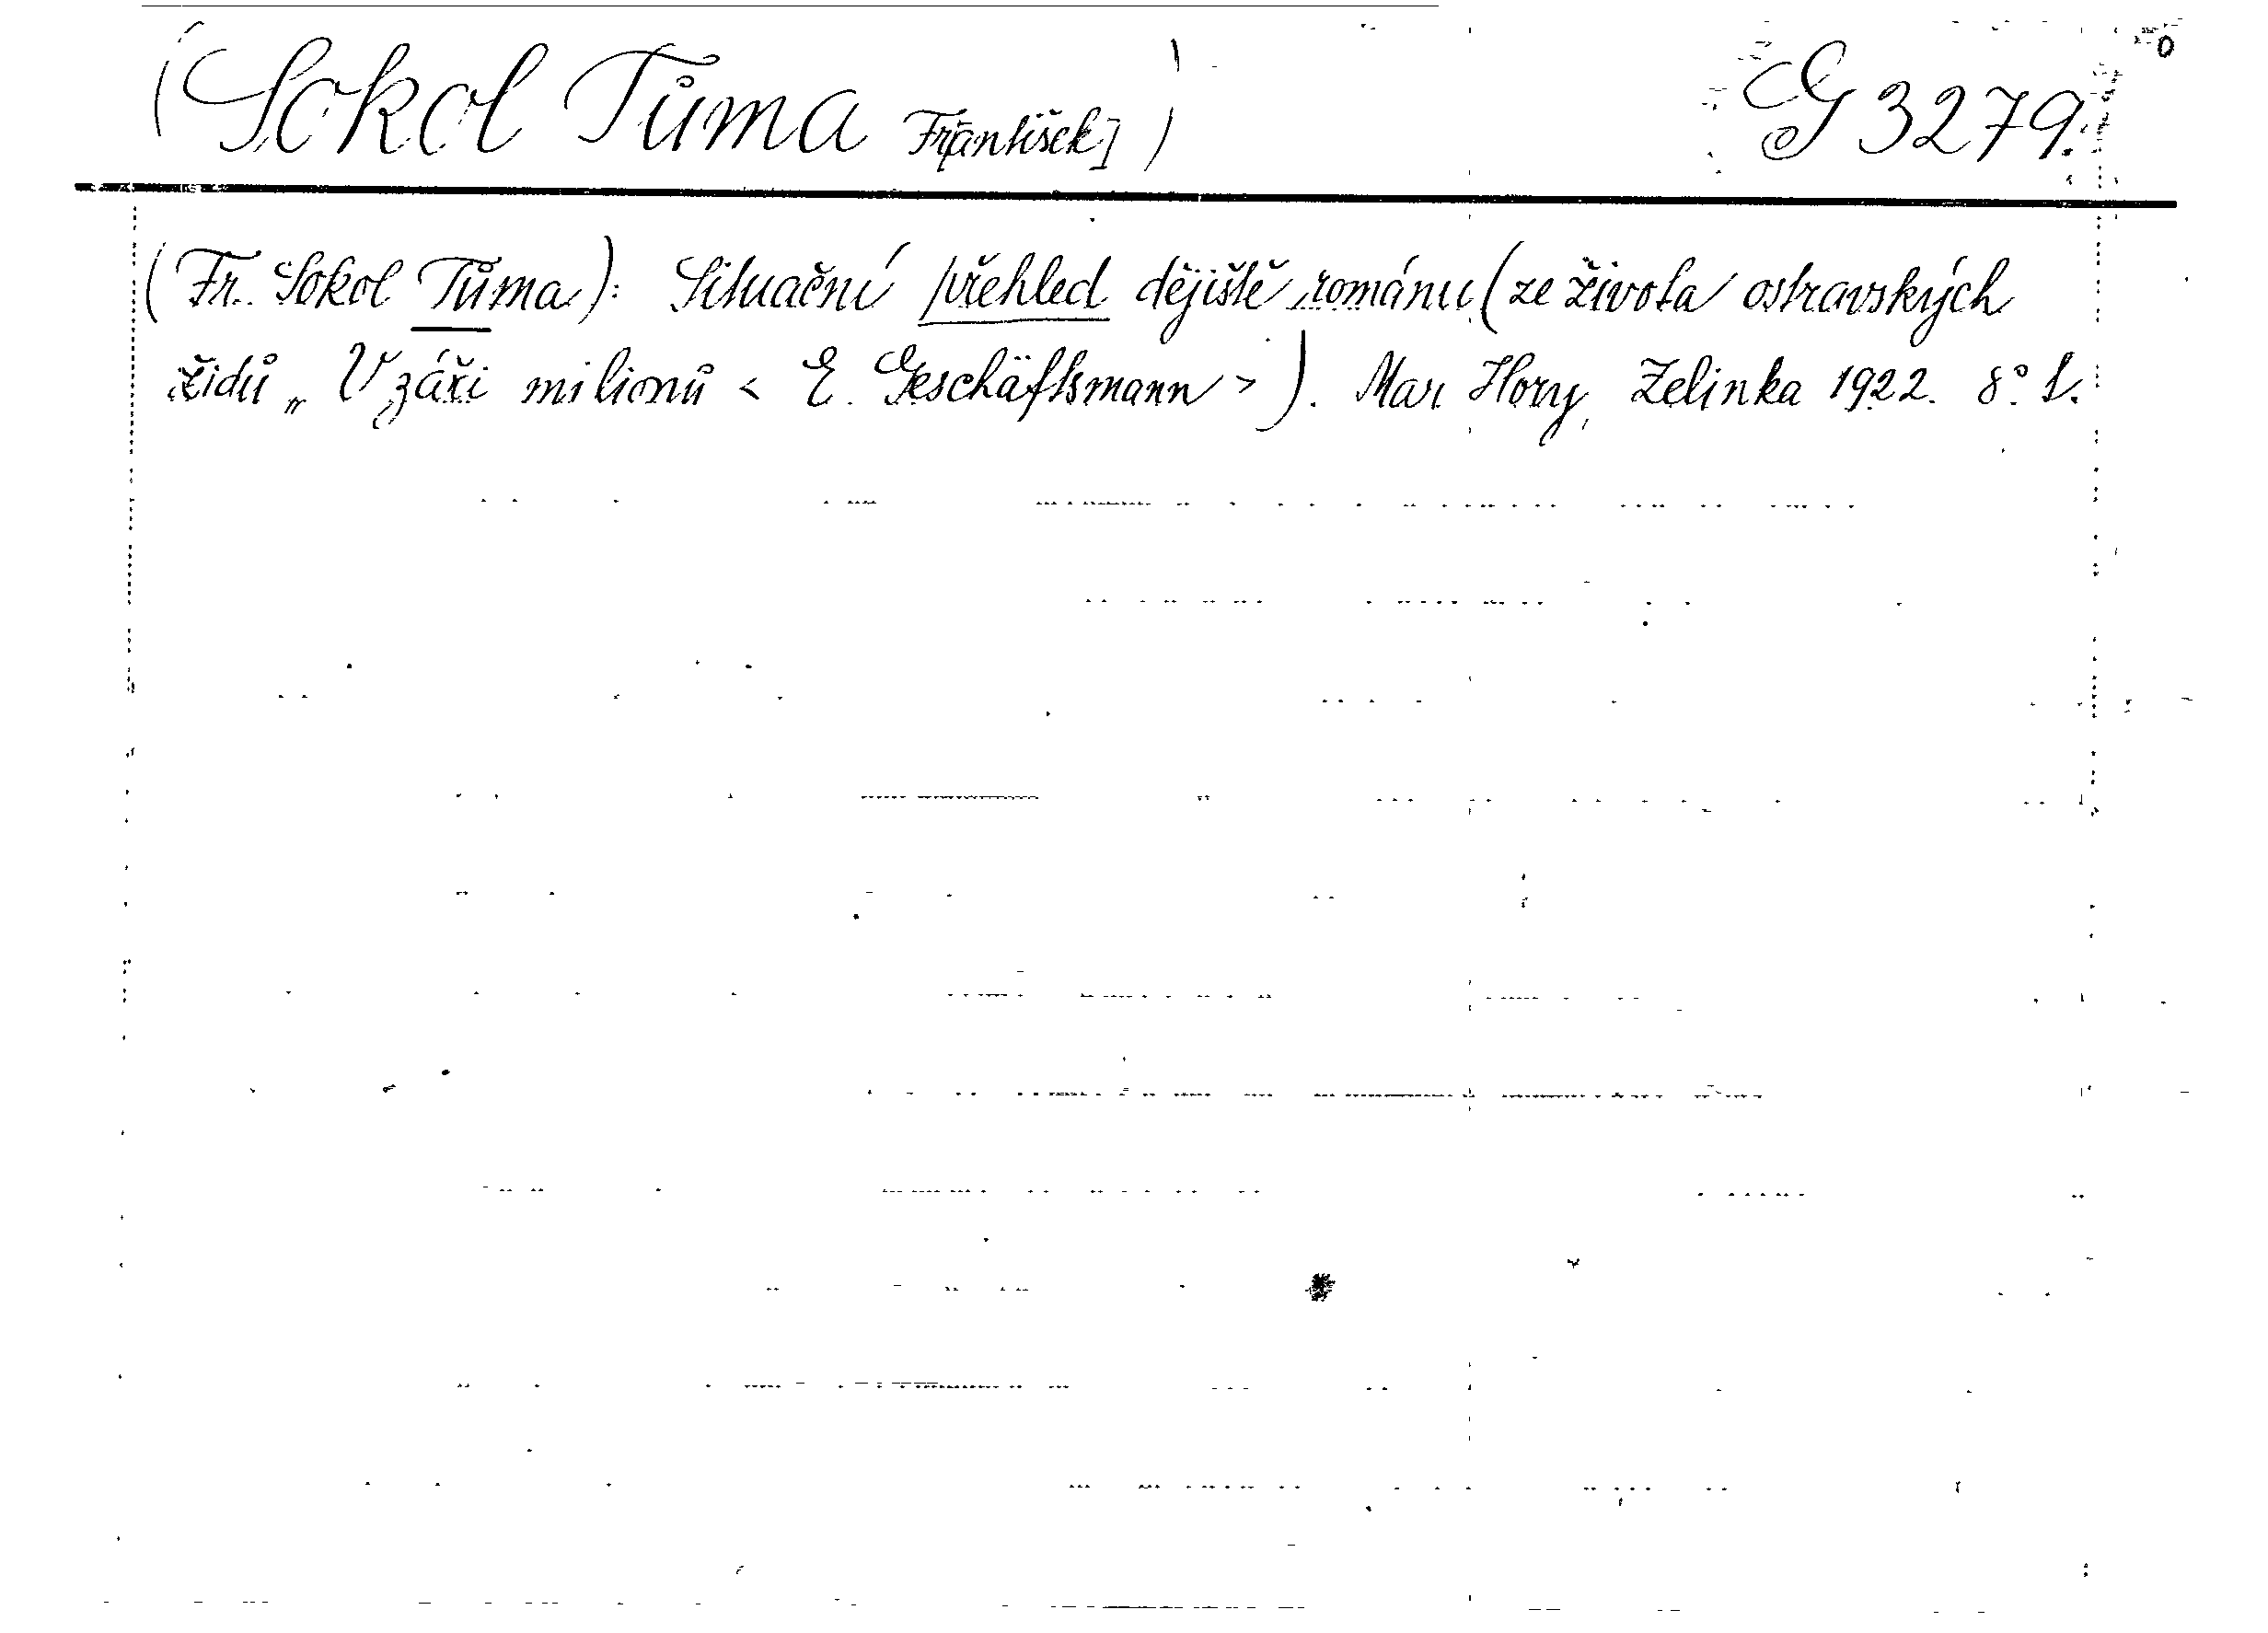 (Sokol Tůma Fr[antišek])
G 3279.
(Fr. Sokol Tůma): Situační přehled dějiště románu (ze života ostravských
židů „V záři milionů < E. Geschäftsmann > ). Mar. Hory, Zelinka 1922. 8° 1.